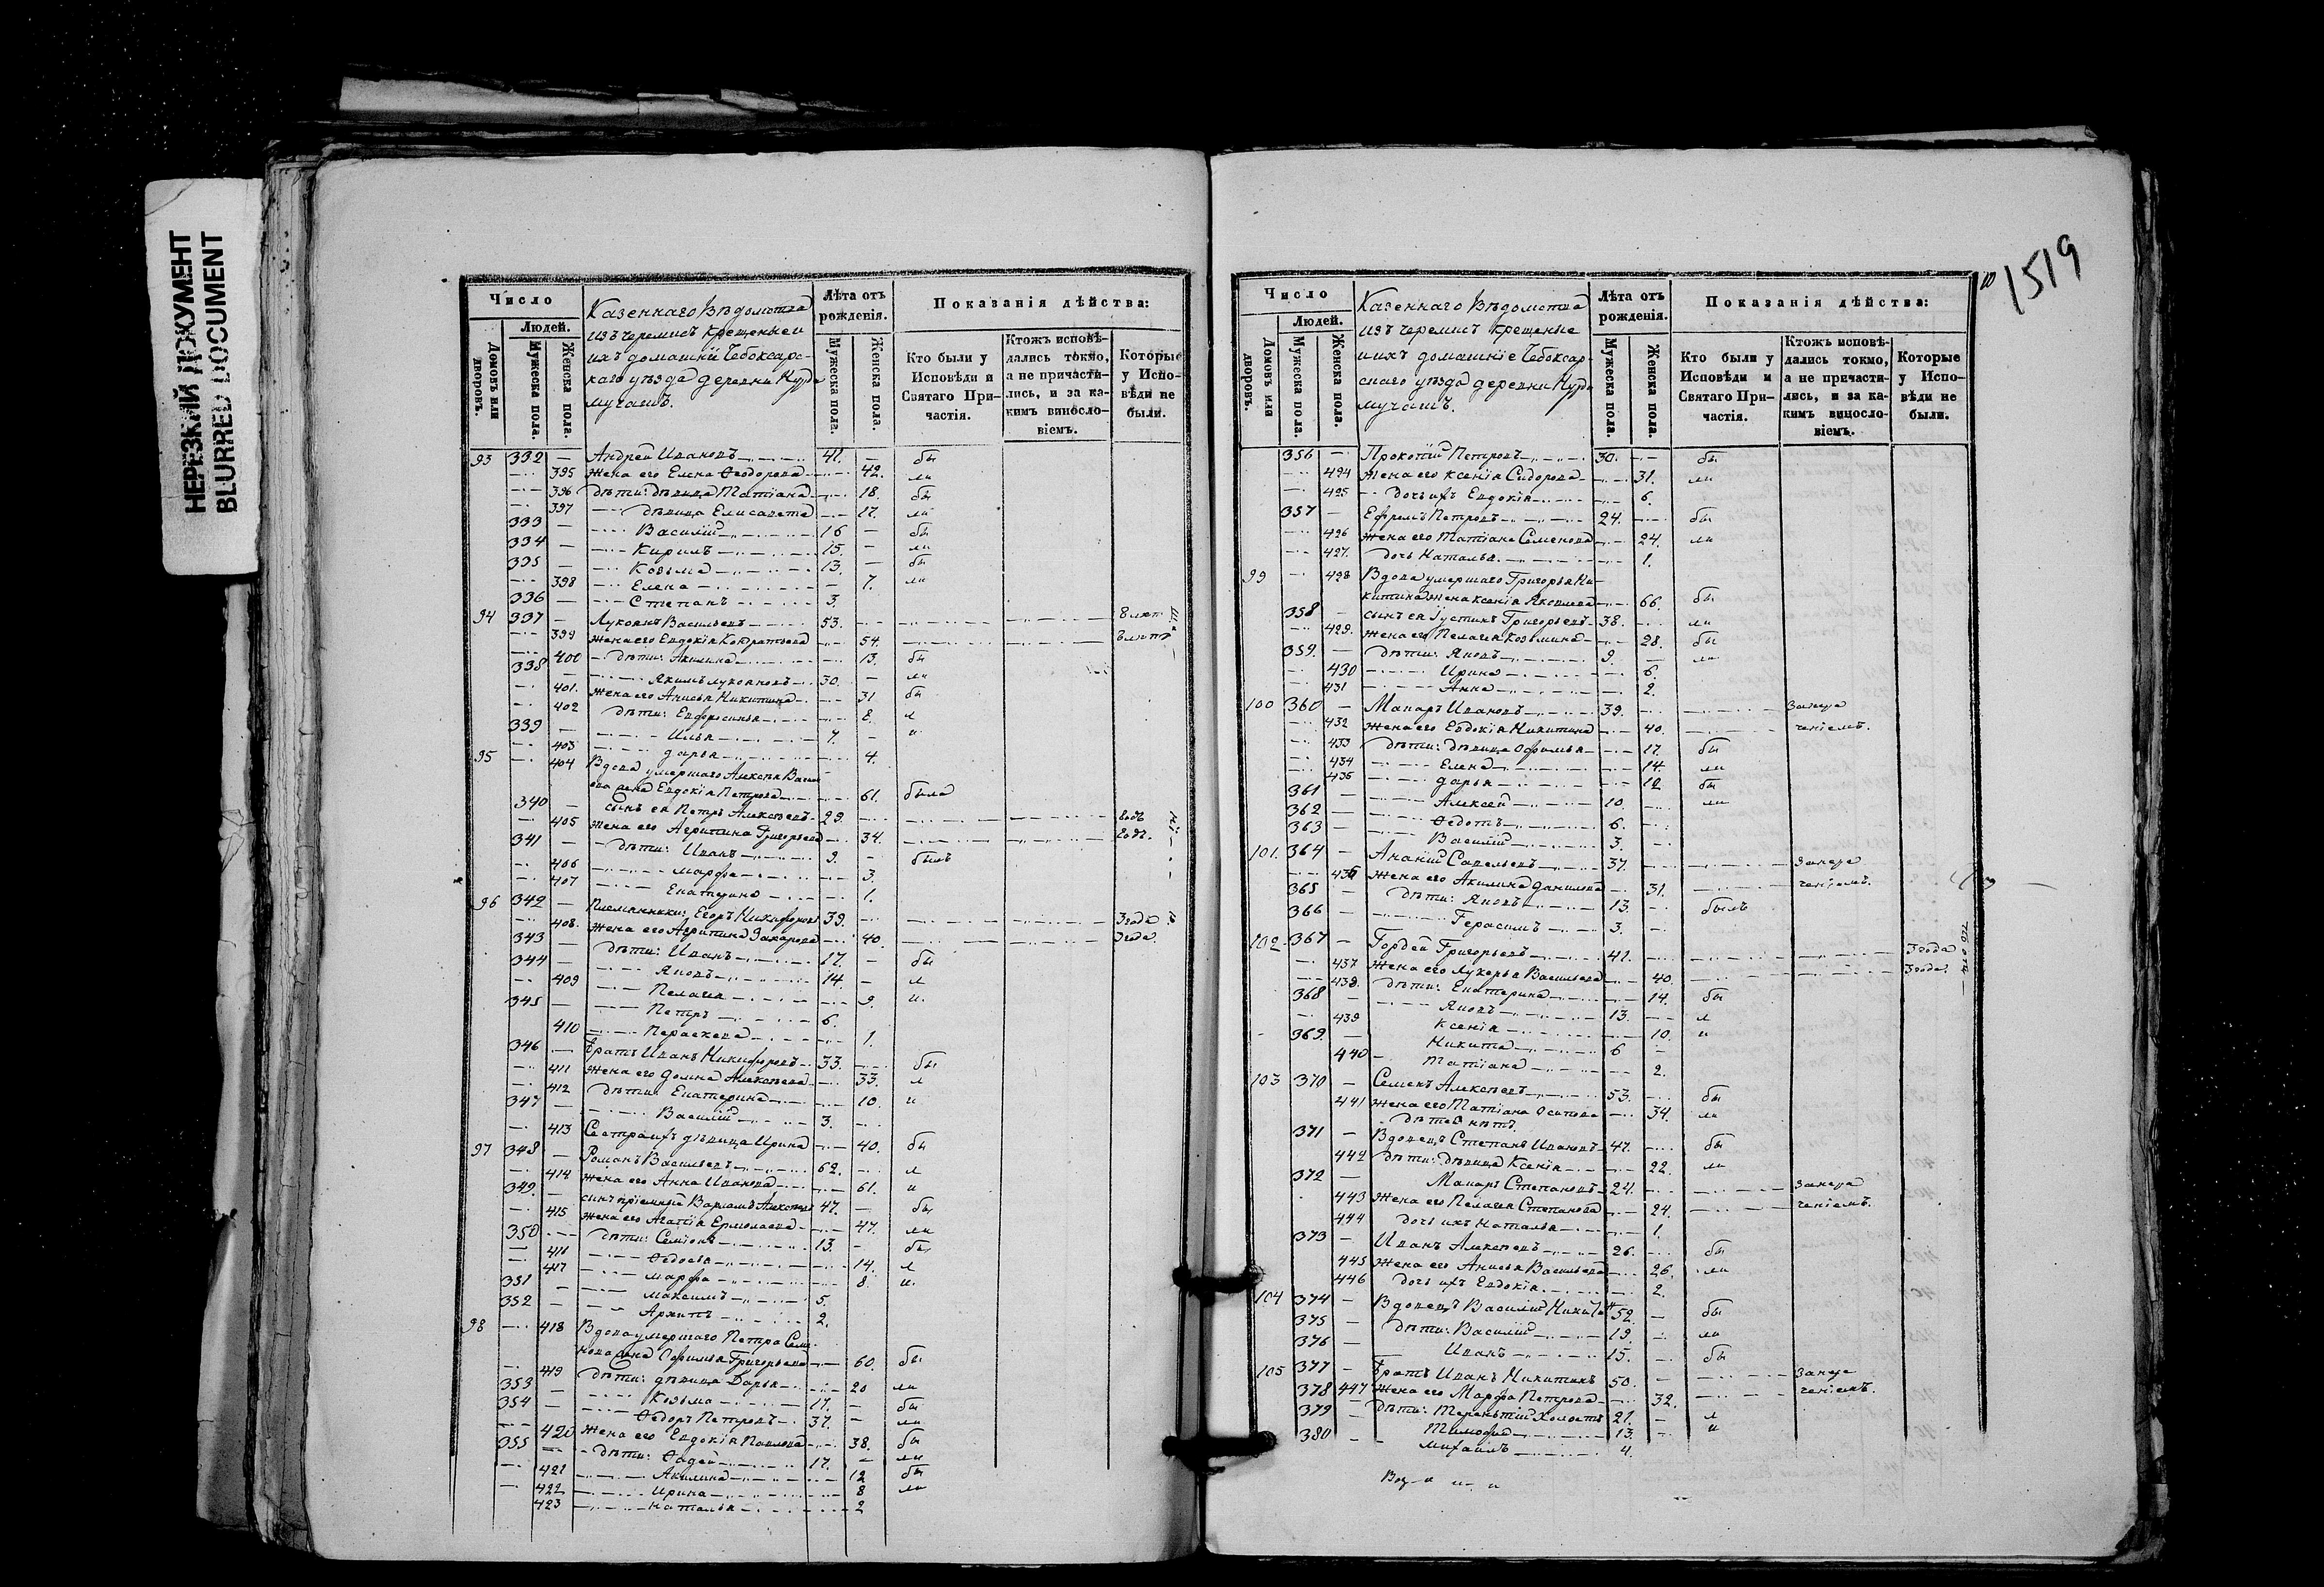 НЕРЕЗКИЙ ДОКУМЕНТ
BLURRED DOCUMENT
Число
Людей.
Домовъ или дворовъ.
Мужеска пола.
Женска пола.
Казеннаго Вѣдомства
изъ черемисъ крещеныеи
ихъ домашніи Чебоксарс-
каго уѣзда деревни Курд
мучашъ.
Лѣта отъ рожденія.
Мужеска пола.
Женска пола.
Показанія дѣйства:
Кто были у Исповѣди и Святаго Причастія.
Ктожъ исповѣдались токмо, а не причастились, и за какимъ винословіемъ.
Которые у Исповѣди не были.
93 332 — Андрей Ивановъ 41. — бы
395 Жена его Елена Ѳеодорова 42. ли
396 дѣти: дѣвица Татіана 18. бы
397 дѣвица Елисавета 17. ли
333 — Василій 16 — бы
334 — Кирилъ 15. — ли
335 — Козьма 13. — бы
398 Елена 7. ли
336 — Степанъ 3.
94 337 — Лукоянъ Васильевъ 53. 8 лѣт
399 Жена его Евдокія Кондратьева 54. 8 лѣтъ
400 дѣти: Акилина 13. бы
338 — Якимъ Лукояновъ 30. — ли
401. Жена его Анисья Никитина 31 бы
402 дѣти: Евфросинья 8. л
339 — Илья 7. — и
403 дарья 4.
95 404 Вдова умершаго Алексѣя Васи-
ева жена Евдокія Петрова 61. была
340 — Сынъ ея Петръ Алексѣевъ 29. годъ
405 Жена его Агрипина Григорьева 34. годъ.
341 — дѣти: Иванъ 9. — былъ
406 Марфа 3.
407 Екатерина 1.
96 342 — Племянники: Егоръ Никифоровъ 39. 3 года
408. Жена его Агрипина Захарова 40. 3 года.
343 — дѣти: Иванъ 17. — бы
344 — Яковъ 14. — л
409 Пелагея 9. и.
345 — Петръ 6.
410 Параскева 1.
346 — Братъ Иванъ Никифоровъ 33. бы
411 Жена его Домна Алексѣева 33. л
412 дѣти: Екатерина 10. и
347 — Василій 3.
413 Сестра ихъ дѣвица Ирина 40. бы
97 348 — Романъ Васильевъ 62. л
414 Жена его Анна Иванова 61. и
349. — сынъ пріемный Варламъ Алексѣевъ 47. — бы
415 Жена его Агапія Ермолаева 47. ли
350 — дѣти: Семіонъ 13. — бы
416 Ѳедосья 14. л
417 Марфа 8. и.
351 — Максимъ 5.
352 — Архипъ 2.
98 418 Вдова умершаго Петра Семи-
нова жена Софимья Григорьева 60. бы
419 дѣти: дѣвица Дарья 20 ли
353 — Козьма 17. — бы
354 — Ѳедоръ Петровъ 37. — ли
420 Жена его Евдокія Павлова 38. бы
355 — дѣти: Ѳадей 17. — ли
421 Акилина 12 бы
422 Ирина 8 ли
423 Наталья 2
1519
Число
Людей.
Домовъ или дворовъ.
Мужеска пола.
Женска пола.
Казеннаго Вѣдомства
изъ черемисъ крещеные
и ихъ домашніе Чебоксар-
скаго уѣзда деревни Курд
мучашъ.
Лѣта отъ рожденія.
Мужеска пола.
Женска пола.
Показанія дѣйства:
Кто были у Исповѣди и Святаго Причастія.
Ктожъ исповѣдались токмо, а не причастились, и за какимъ винословіемъ.
Которые у Исповѣди не были.
356 — Прокопій Петровъ 30. бы
424 Жена его Ксенія Сидорова 31. ли
425 дочь ихъ Евдокія 6.
357 — Ефремъ Петровъ 24. бы
426 Жена его Татіана Семенова 24. ли
427. дочь Наталья 1.
99 428 Вдова умершаго Григорья Ни-
китина жена Ксенія Яковлева 66. бы
358 — сынъ ея Іустинъ Григорьевъ 38. ли
429. Жена его Пелагея Козьмина 28. бы
359. — дѣти: Яковъ 9. — ли
430 Ирина 6.
431 Анна 2.
100 360 — Макаръ Ивановъ 39. Занере
432 Жена его Евдокія Никитина 40. ченіемъ.
433 дѣти: дѣвица Офимья 17. бы
434 Елена 14. ли
435 дарья 12 бы
361 — Алексѣй 10. ли
362 — Ѳедотъ 6.
363 — Василій 3.
101. 364 — Ананій Савельевъ 37. Занере
436 Жена его Акилина Данилова 31. ченіемъ.
365 — дѣти: Яковъ 13. былъ
366 — Герасимъ 3.
102 367 — Гордей Григорьевъ 41. 3 года
437 Жена его Лукерья Васильева 40. 3 года.
438. дѣти: Екатерина 14. бы
368 — Яковъ 13. л
439 Ксенія 10. и
369. — Никита 6 —
440 Татіана 2.
103 370 — Семенъ Алексѣевъ 53. бы
441 Жена его Татіана Осипова 34. ли
дѣтей нѣтъ.
371 — Вдовецъ Степанъ Ивановъ 47. бы
442 дѣти: дѣвица Ксенія 22. ли
372 — Макаръ Степановъ 24. Занере
443 Жена его Пелагея Степанова 24. ченіемъ.
444 дочь ихъ Наталья 1.
373 — Иванъ Алексѣевъ 26. бы
445 Жена его Анисья Васильева 26. ли
446 дочь ихъ Евдокія 2.
104 374 — Вдовецъ Василій Никит 52. — бы
375 — дѣти: Василій 19. ли
376 — Иванъ 15. бы
105 377 — Братъ Иванъ Никитинъ 50. — Занере
378 447 Жена его Марфа Петрова 32. ченіемъ.
379 — дѣти: Терентій холостъ 21. — л
Тимофей 13. — и
380 — Михаилъ 4.